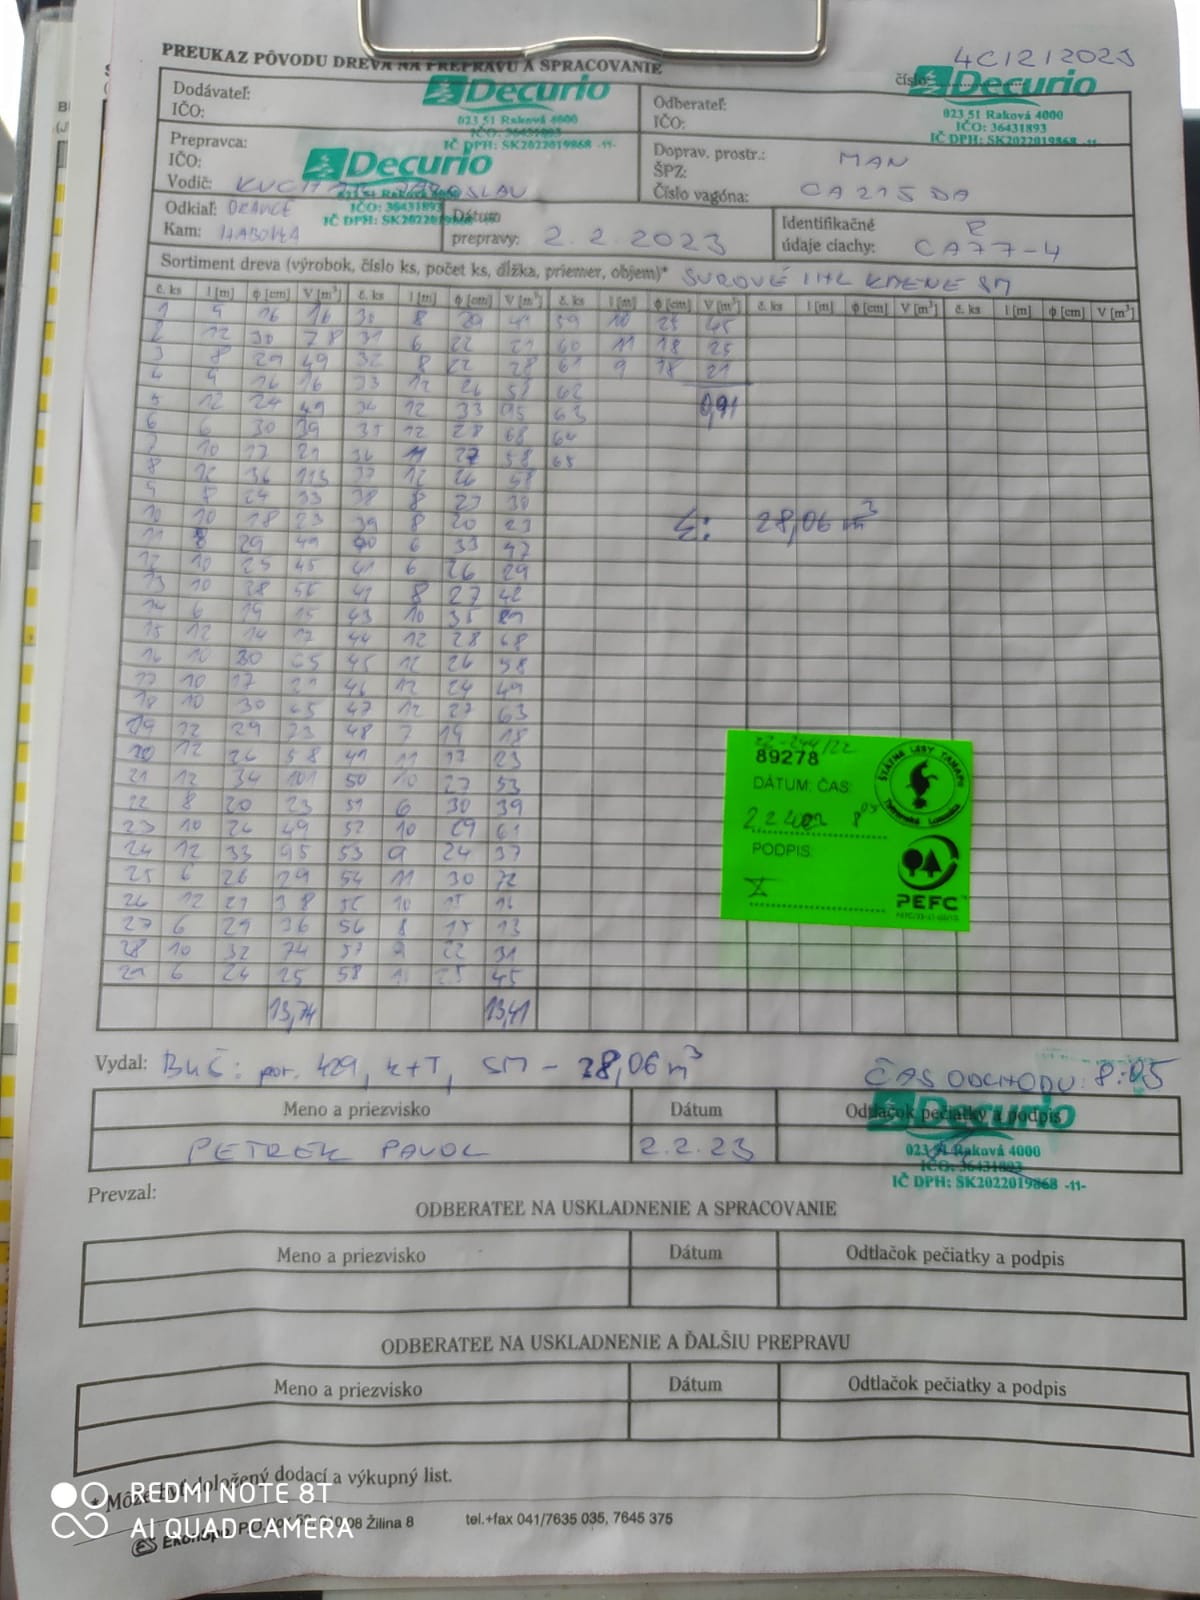 PREUKAZ PÔVODU DREVA NA PREPRAVU A SPRACOVANIE
číslo: 4C/2/2023
Decurio
023 51 Raková 4000
IČO: 36431893
IČ DPH: SK2022019868 -11-
Dodávateľ:
IČO:
Decurio
023 51 Raková 4000
IČO: 36431893
IČ DPH: SK2022019868 -11-
Odberateľ:
IČO:
Prepravca:
IČO:
Decurio
023 51 Raková 4000
IČO: 36431893
IČ DPH:
Vodič:
Doprav. prostr.: MAN
ŠPZ:
Číslo vagóna: CA 215 DA
Odkiaľ: ORAVICE
Kam: HABOVKA
Dátum
prepravy: 2.2.2023
Identifikačné
údaje ciachy: CA77-4
Sortiment dreva (výrobok, číslo ks, počet ks, dĺžka, priemer, objem)* SUROVÉ IHL KMENE SM
č. ks l [m] φ [cm] V [m³] č. ks l [m] φ [cm] V [m³] č. ks l [m] φ [cm] V [m³] č. ks l [m] φ [cm] V [m³] č. ks l [m] φ [cm] V [m³]
1 9 16 16 30 8 29 49 59 10 25 45
2 12 30 78 31 6 22 21 60 11 18 25
3 8 29 49 32 8 22 28 61 9 18 21
4 9 16 16 33 12 26 58 62
5 12 24 49 34 12 33 95 63 0,91
6 6 30 39 35 12 28 68 64
7 10 17 21 36 11 27 58 65
8 12 36 113 37 12 26 58
9 8 24 33 38 8 23 30
10 10 18 23 39 8 20 23 Σ: 28,06 m³
11 8 29 49 40 6 33 47
12 10 25 45 41 6 26 29
13 10 28 56 42 8 27 42
14 6 19 15 43 10 35 89
15 12 14 17 44 12 28 68
16 10 30 65 45 12 26 58
17 10 17 21 46 12 24 49
18 10 30 65 47 12 27 63
19 12 29 73 48 7 19 18
20 12 26 58 49 11 17 23
21 12 34 101 50 10 27 53
22 8 20 23 51 6 30 39
23 10 26 49 52 10 29 61
24 12 33 95 53 9 24 37
25 6 26 29 54 11 30 72
26 12 21 38 55 10 15 16
27 6 29 36 56 8 15 13
28 10 32 74 57 9 22 31
29 6 24 25 58 25 45
13,74 13,41
89278
DÁTUM, ČAS:
PODPIS:
ŠTÁTNE LESY TANAPu
Tatranská Lomnica
PEFC
Vydal: por. 429, k+T, SM - 28,06 m³
ČAS ODCHODU: 8:05
Meno a priezvisko Dátum Odtlačok pečiatky a podpis
PETREK PAVOL 2.2.23
Decurio
023 51 Raková 4000
IČO: 36431893
IČ DPH: SK2022019868 -11-
Prevzal:
ODBERATEĽ NA USKLADNENIE A SPRACOVANIE
Meno a priezvisko Dátum Odtlačok pečiatky a podpis
ODBERATEĽ NA USKLADNENIE A ĎALŠIU PREPRAVU
Meno a priezvisko Dátum Odtlačok pečiatky a podpis
* Môže byť doložený dodací a výkupný list.
REDMI NOTE 8T
AI QUAD CAMERA
Žilina 8 tel.+fax 041/7635 035, 7645 375